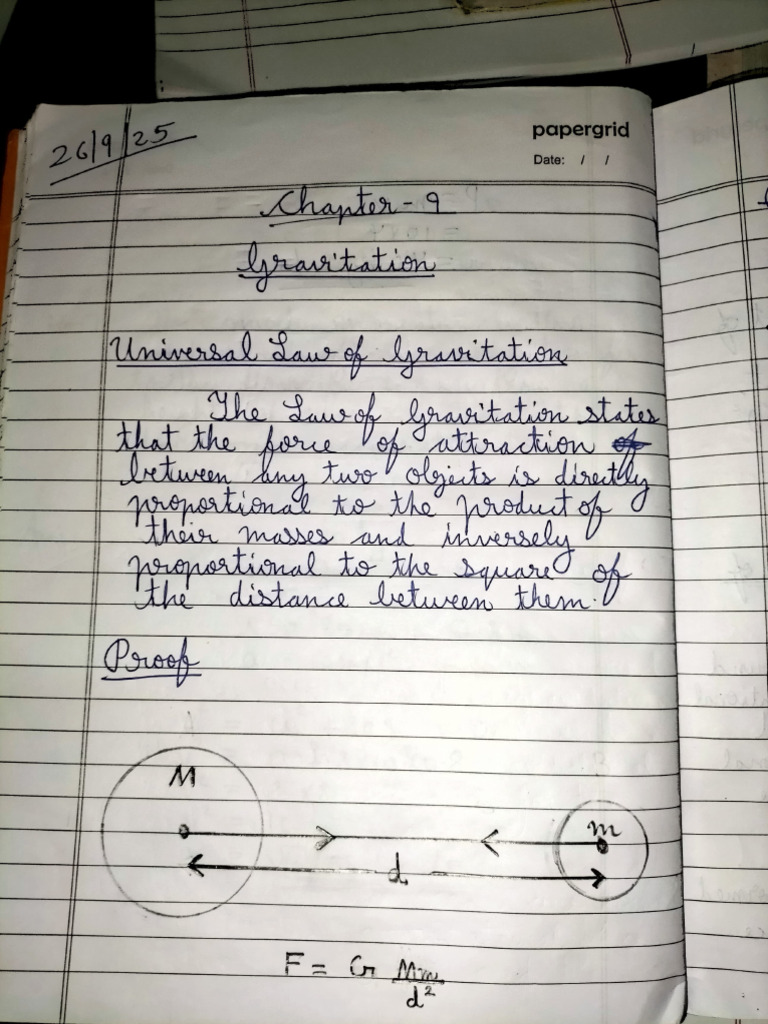 26/9/25
papergrid
Date: / /
Chapter - 9
Gravitation
Universal Law of Gravitation
The Law of Gravitation states
that the force of attraction of
between any two objects is directly
proportional to the product of
their masses and inversely
proportional to the square of
the distance between them.
Proof
M
m
d
F = G Mm/d²